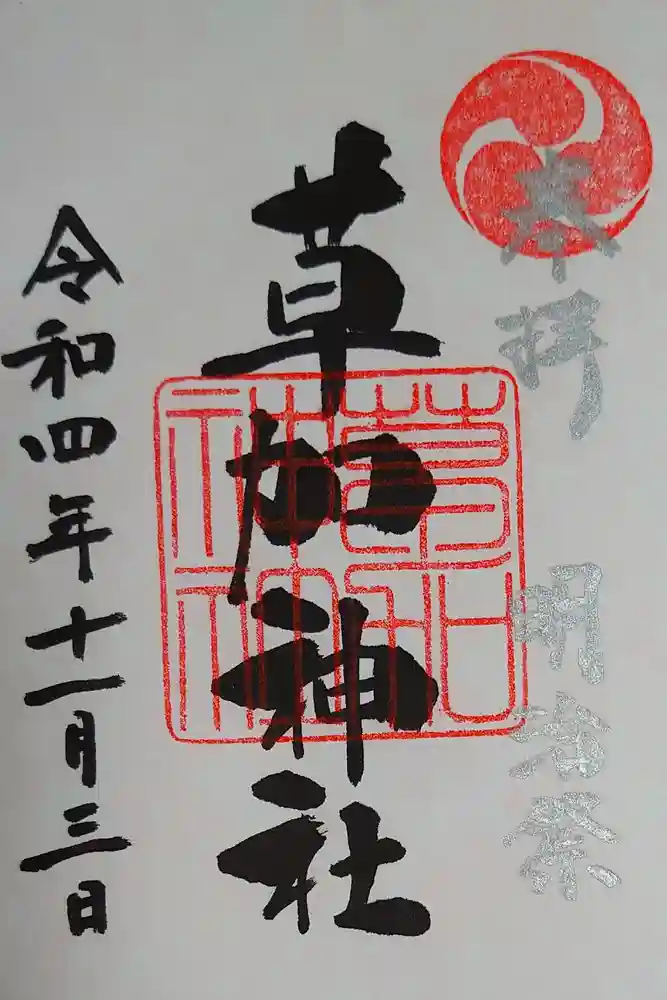 奉拝　明治祭
草加神社
令和四年十一月三日